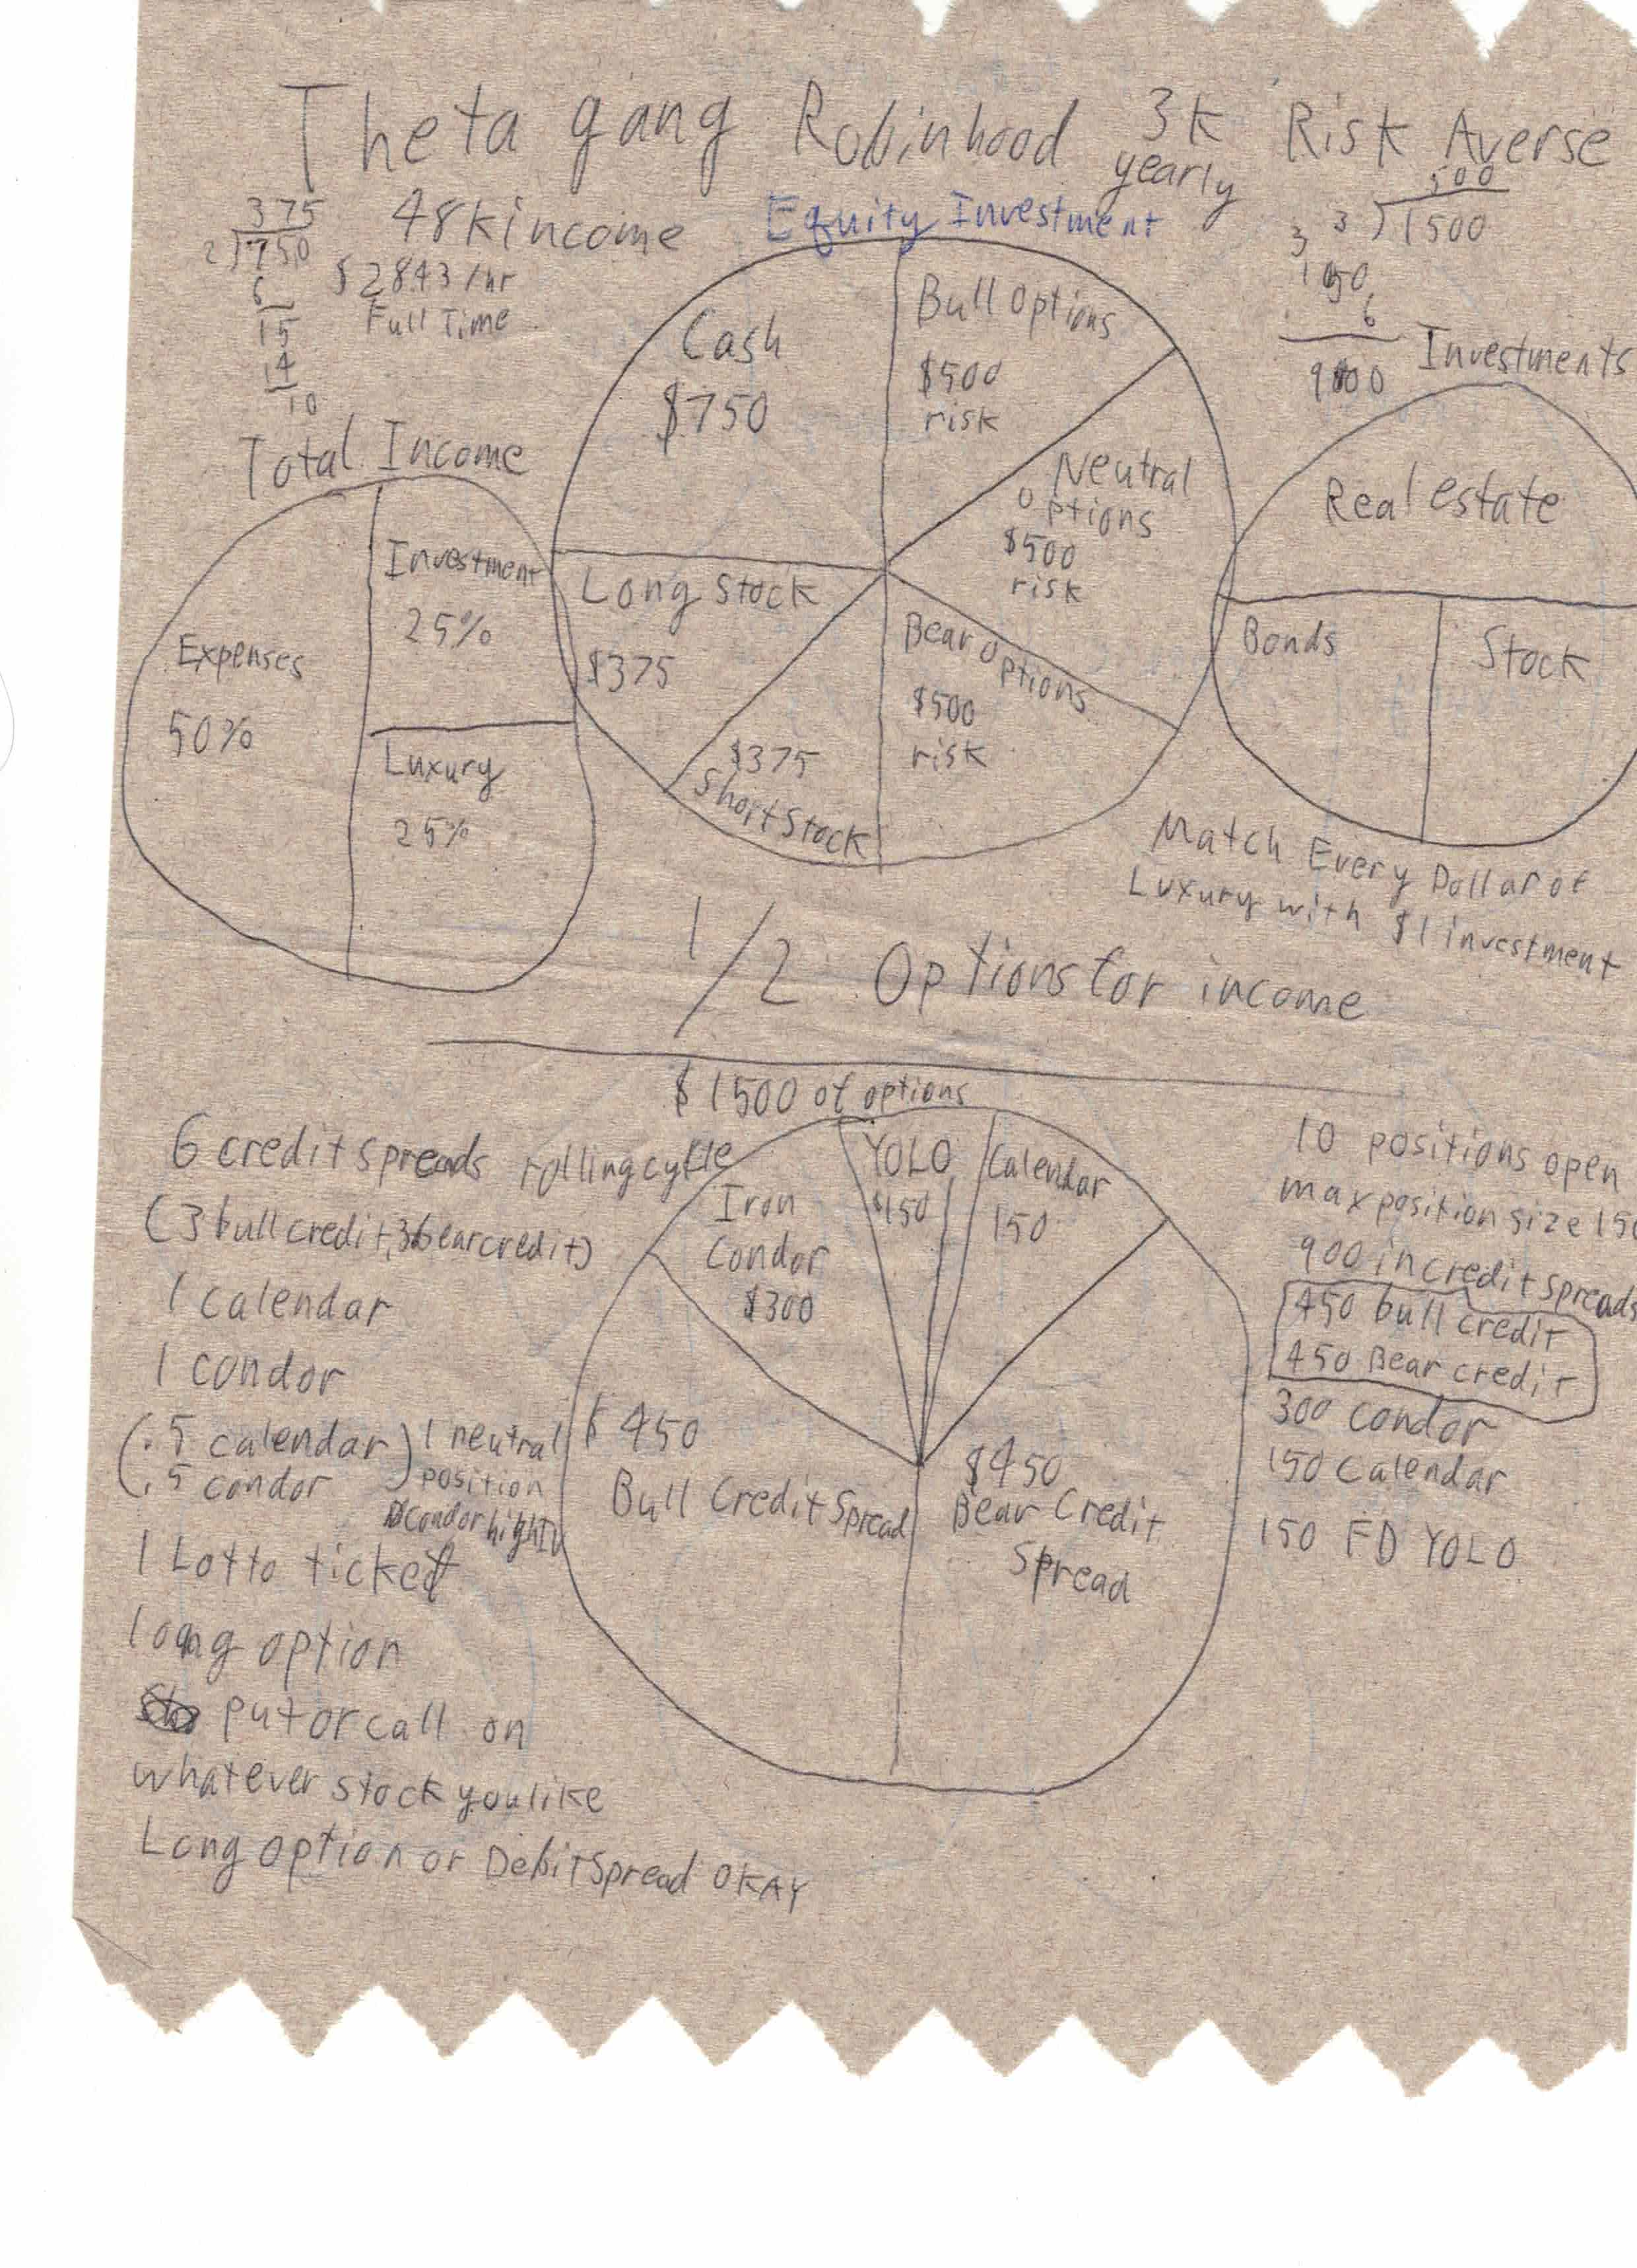 Theta gang Robinhood 3k yearly Risk Averse
375
2)750
6
15
14
10
48k income
$2843/hr
Full Time
Equity Investment
500
3)1500
3
150
6
900
Total Income
Expenses
50%
Investment
25%
Luxury
25%
Cash
$750
Bull Options
$500
risk
Neutral
options
$500
risk
Bear Options
$500
risk
Long Stock
$375
$375
Short Stock
Investments
Real estate
Bonds
Stock
Match Every Dollar of
Luxury with $1 investment
1/2 Options for income
$1500 of options
6 credit spreads rolling cycle
(3 bull credit, 3 bear credit)
1 calendar
1 condor
(.5 calendar
.5 condor)
1 neutral
position
condor high IV
1 Lotto ticket
long option
put or call on
whatever stock you like
Long option or Debit Spread OKAY
Iron
Condor
$300
YOLO
$150
Calendar
150
$450
Bull Credit Spread
$450
Bear Credit
Spread
10 positions open
max position size 150
900 in credit spreads
450 bull credit
450 Bear credit
300 condor
150 calendar
150 FD YOLO